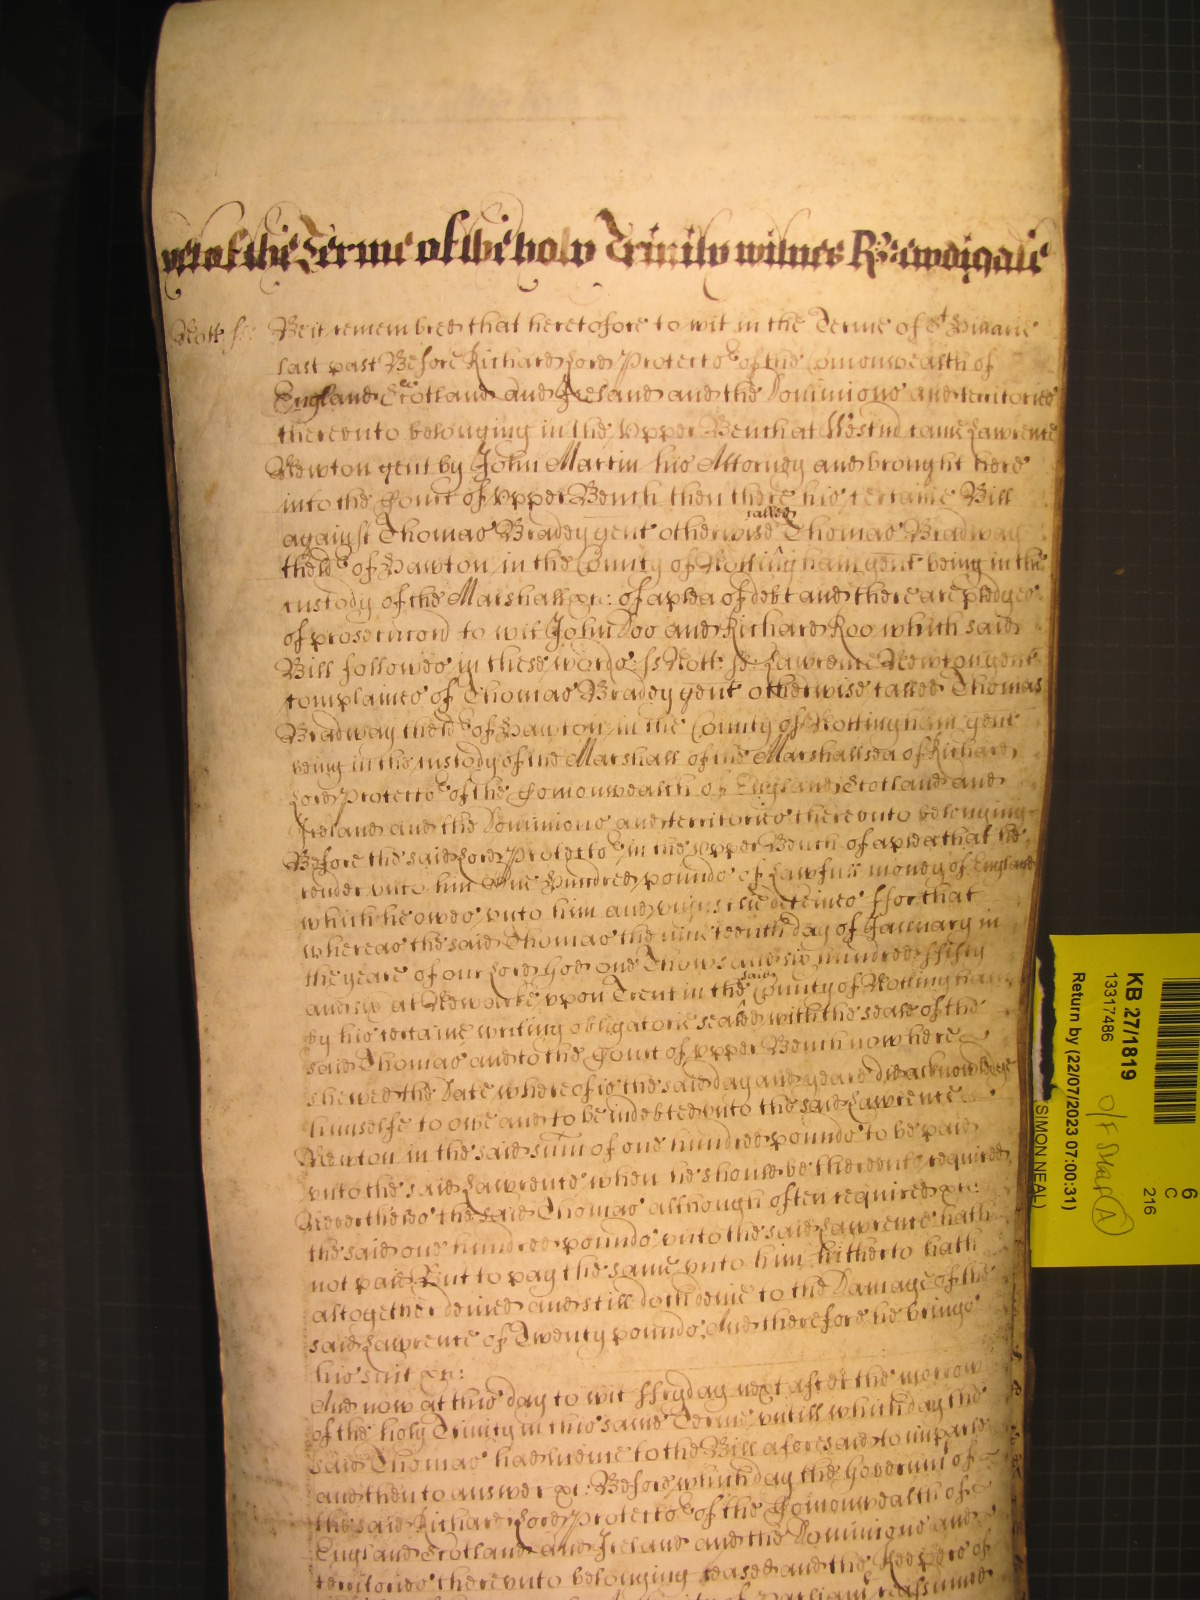 yet of the Terme of the holy Trinity witnes R: Newdigate
Nott: ss: Be it remembred that heretofore to wit in the Terme of St Hillarie
last past Before Richard Lord Protector of the Comonwealth of
England Scotland and Ireland and the Dominions and territories
therevnto belonging in the Vpper Bench at Westmr came Lawrence
Newton gent by John Martin his Attorney and brought here
into the Court of Vpper Bench then there his certaine Bill
against Thomas Bradey gent otherwise called Thomas Bradway
theldr of Hawton in the County of Nottingham gent being in the
custody of the Marshall &c: of a plea of debt and there are pledges
of prosecucion to wit John Doo and Richard Roo which said
Bill followes in these words ss Nott: ss: Lawrence Newton gent
complaines of Thomas Bradey gent otherwise called Thomas
Bradway theldr of Hawton in the County of Nottingham gent
being in the custody of the Marshall of the Marshallsea of Richard
Lord Protector of the Comonwealth of England Scotland and
Ireland and the Dominions and territories therevnto belonging
Before the said Lord Protector in the vpper Bench of a plea that he
render vnto him One Hundred pounds of Lawfull money of England
which he owes vnto him and vniustlie deteines ffor that
whereas the said Thomas the nineteenth day of January in
the yeare of our Lord God one Thowsand six hundred ffifty
and six at Newarke vpon Trent in the said County of Nottingham
by his certaine writing obligatorie sealed with the seale of the
said Thomas and to the Court of vpper Bench now here
shewed the Date whereof is the said day and yeare did acknowledge
himselfe to owe and to be indebted vnto the said Lawrence
Newton in the said sum of one hundred pounds to be paid
vnto the said Lawrence when he should be therevnto required
Neverthelesse the said Thomas although often required &c:
the said one hundred pounds vnto the said Lawrence hath
not paid But to pay the same vnto him hitherto hath
altogether denied and still doth denie to the Damage of the
said Lawrence of Twenty pounds, And therefore he brings
his suit &c:
And now at this day to wit ffryday next after the morrow
of the holy Trinity in this same Terme vntill which day the
said Thomas had licence to the Bill aforesaid to imparle
and then to answer &c: Before which day the Government of
the said Richard Lord Protector of the Comonwealth of
England Scotland and Ireland and the Dominions and
territories therevnto belonging ceased and the Keepers of
Parliamt reassumed
KB 27/1819
13317486
Return by (22/07/2023 07:00:31)
(SIMON NEAL)
6
C
216